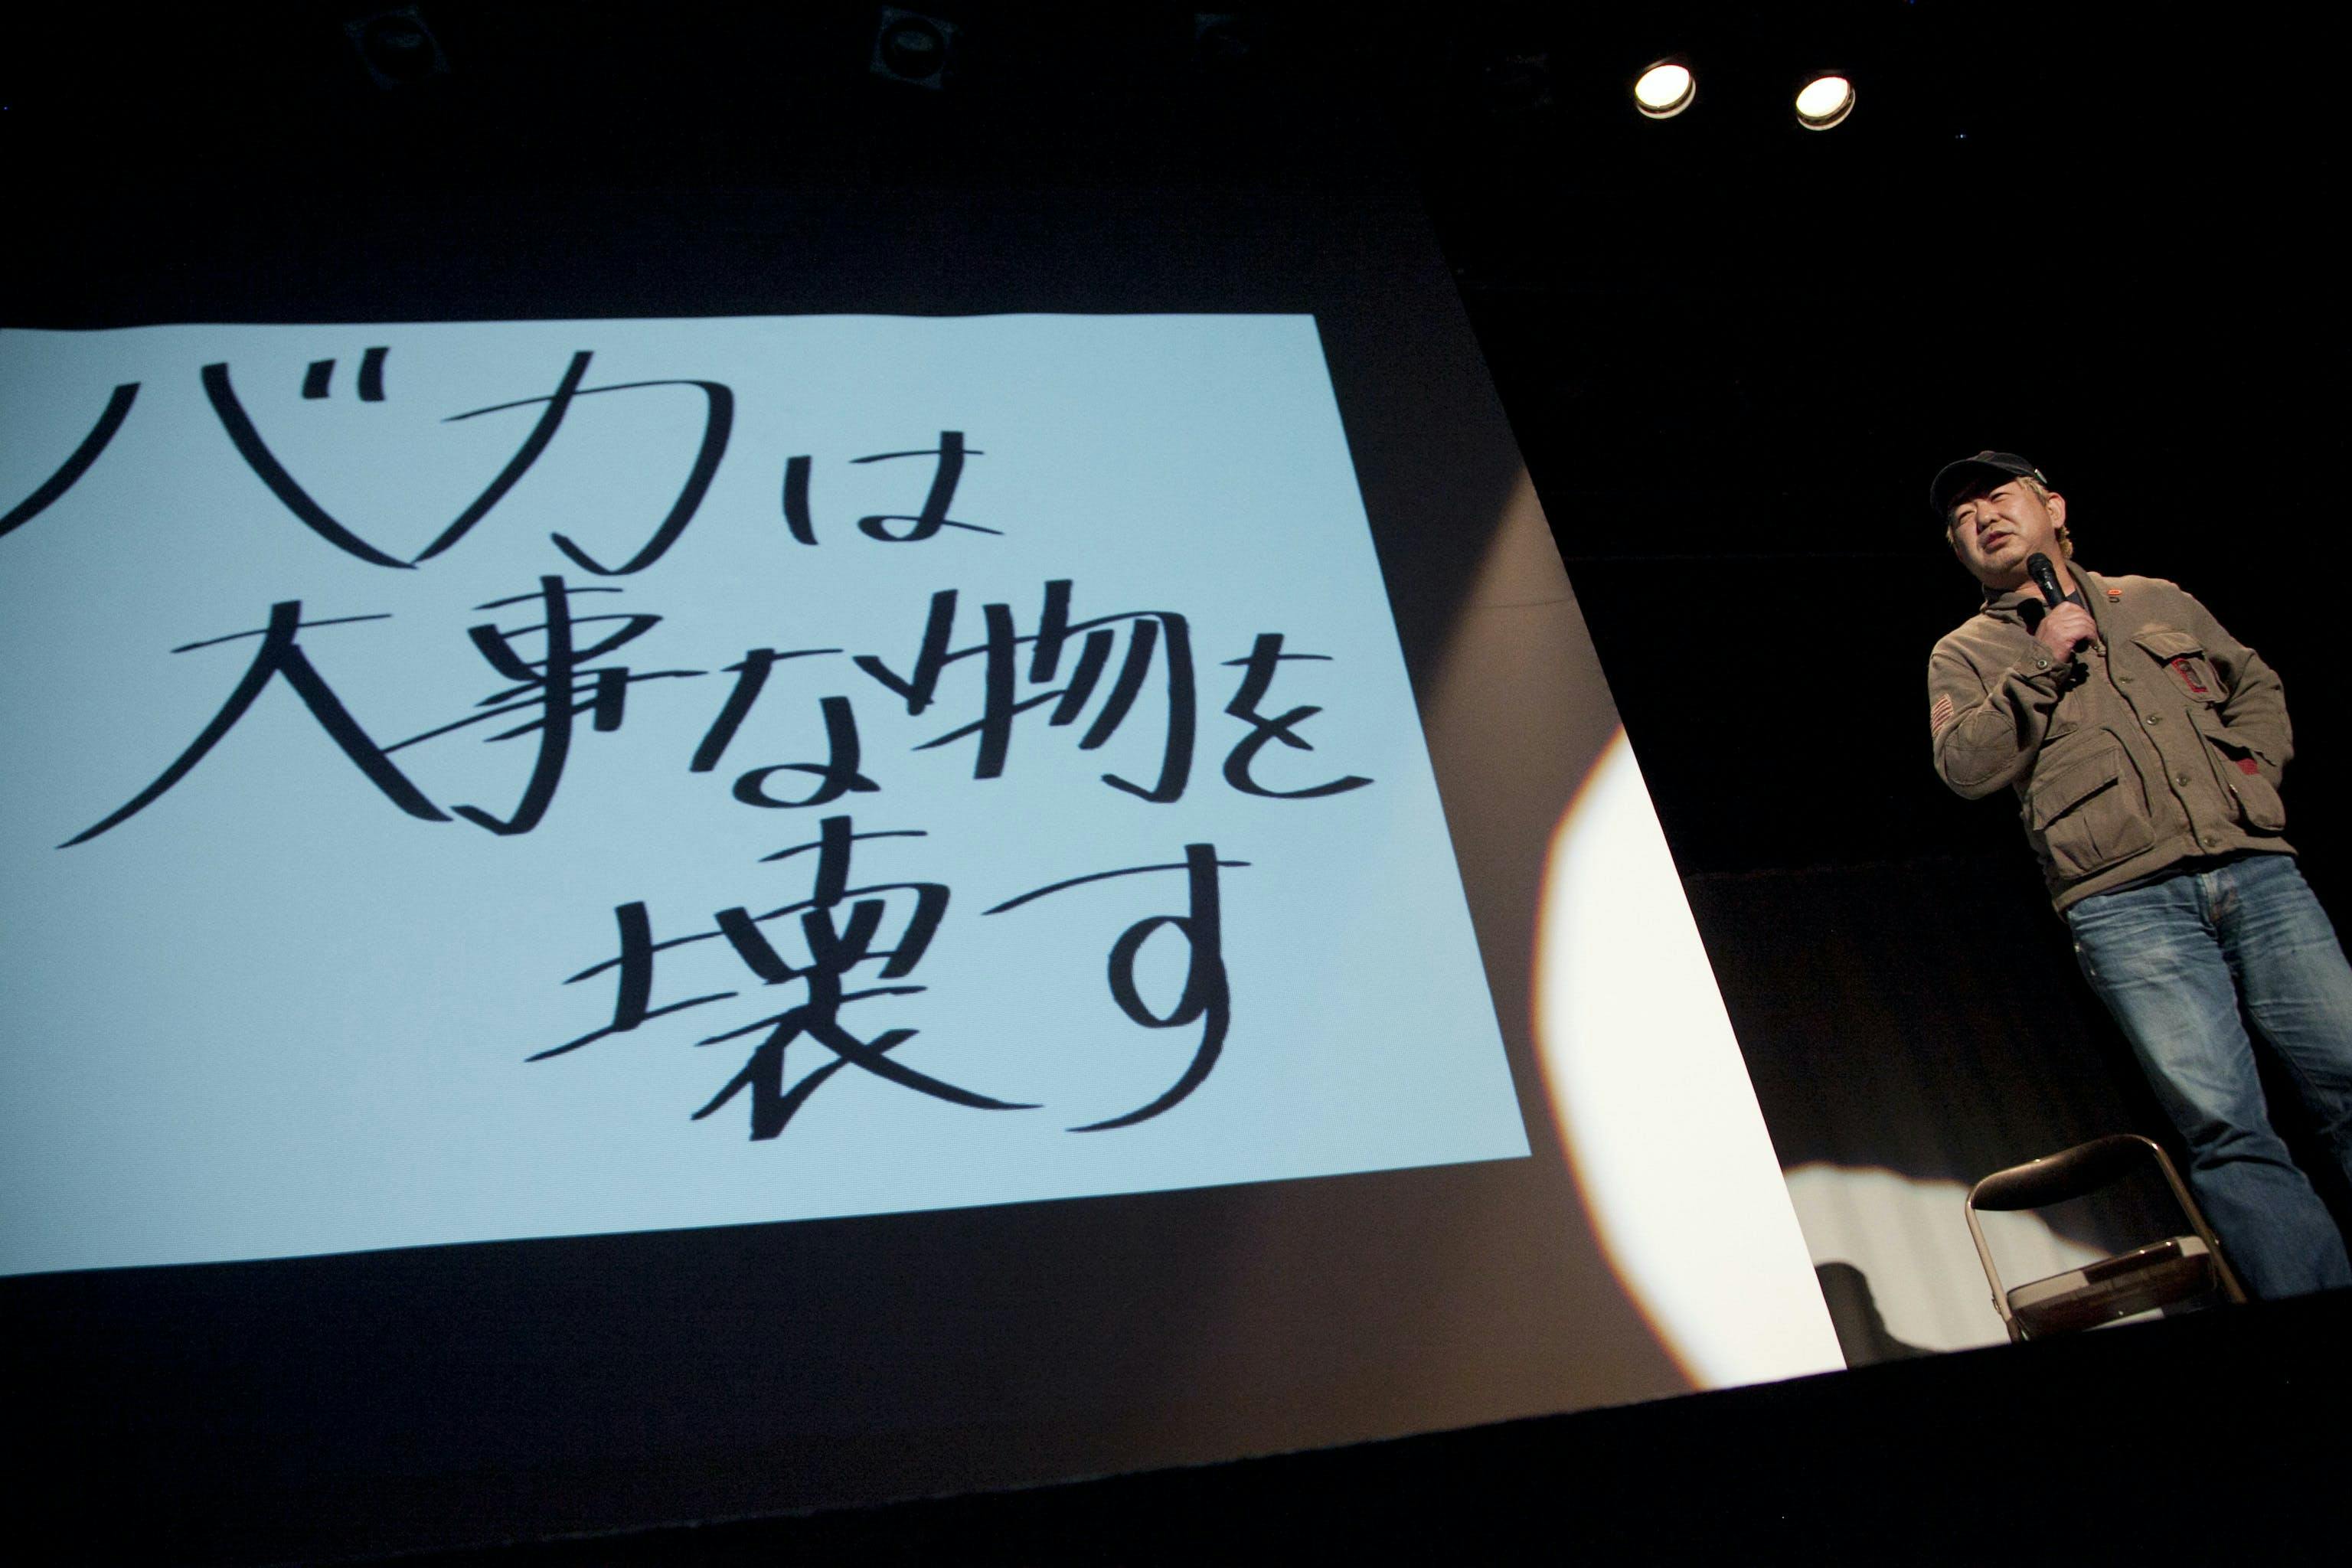 バカは
大事な物を
壊す